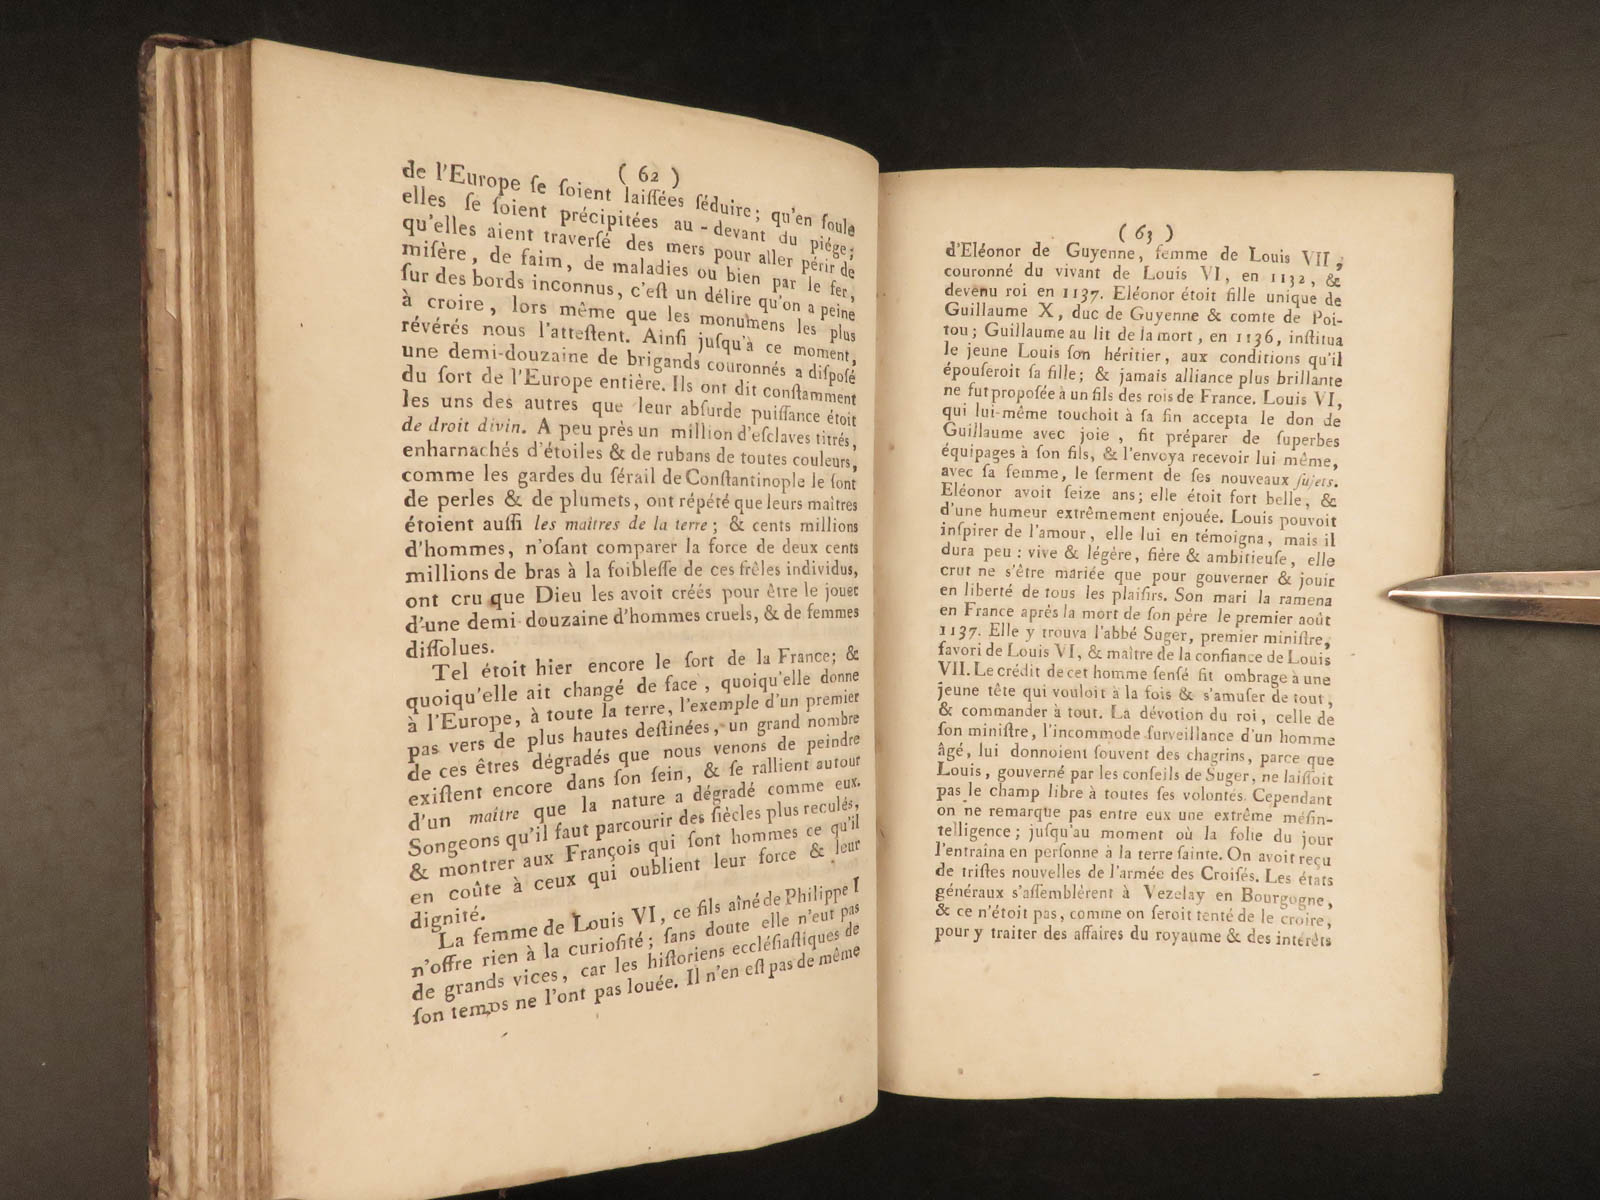 ( 62 )
de l'Europe ſe ſoient laiſſées ſéduire ; qu'en foule
elles ſe ſoient précipitées au-devant du piége ;
qu'elles aient traverſé des mers pour aller périr de
miſère, de faim, de maladies ou bien par le fer,
ſur des bords inconnus, c'eſt un délire qu'on a peine
à croire, lors même que les monumens les plus
révérés nous l'atteſtent. Ainſi juſqu'à ce moment,
une demi-douzaine de brigands couronnés a diſpoſé
du ſort de l'Europe entière. Ils ont dit conſtamment
les uns des autres que leur abſurde puiſſance étoit
de droit divin. A peu près un million d'eſclaves titrés,
enharnachés d'étoiles & de rubans de toutes couleurs,
comme les gardes du ſérail de Conſtantinople le ſont
de perles & de plumets, ont répété que leurs maîtres
étoient auſſi les maîtres de la terre ; & cents millions
d'hommes, n'oſant comparer la force de deux cents
millions de bras à la foibleſſe de ces frêles individus,
ont cru que Dieu les avoit créés pour être le jouet
d'une demi-douzaine d'hommes cruels, & de femmes
diſſolues.
Tel étoit hier encore le ſort de la France ; &
quoiqu'elle ait changé de face, quoiqu'elle donne
à l'Europe, à toute la terre, l'exemple d'un premier
pas vers de plus hautes deſtinées, un grand nombre
de ces êtres dégradés que nous venons de peindre
exiſtent encore dans ſon ſein, & ſe rallient autour
d'un maître que la nature a dégradé comme eux.
Songeons qu'il faut parcourir des ſiècles plus reculés,
& montrer aux François qui ſont hommes ce qu'il
en coûte à ceux qui oublient leur force & leur
dignité.
La femme de Louis VI, ce fils aîné de Philippe I
n'offre rien à la curioſité ; ſans doute elle n'eut pas
de grands vices, car les hiſtoriens eccléſiaſtiques de
ſon temps ne l'ont pas louée. Il n'en eſt pas de même
( 63 )
d'Eléonor de Guyenne, femme de Louis VII,
couronné du vivant de Louis VI, en 1132, &
devenu roi en 1137. Eléonor étoit fille unique de
Guillaume X, duc de Guyenne & comte de Poi-
tou ; Guillaume au lit de la mort, en 1136, inſtitua
le jeune Louis ſon héritier, aux conditions qu'il
épouſeroit ſa fille ; & jamais alliance plus brillante
ne fut propoſée à un fils des rois de France. Louis VI,
qui lui-même touchoit à ſa fin accepta le don de
Guillaume avec joie, fit préparer de ſuperbes
équipages à ſon fils, & l'envoya recevoir lui même,
avec ſa femme, le ſerment de ſes nouveaux ſujets.
Eléonor avoit ſeize ans ; elle étoit fort belle, &
d'une humeur extrêmement enjouée. Louis pouvoit
inſpirer de l'amour, elle lui en témoigna, mais il
dura peu : vive & légère, fière & ambitieuſe, elle
crut ne s'être mariée que pour gouverner & jouir
en liberté de tous les plaiſirs. Son mari la ramena
en France après la mort de ſon père le premier août
1137. Elle y trouva l'abbé Suger, premier miniſtre,
favori de Louis VI, & maître de la confiance de Louis
VII. Le crédit de cet homme ſenſé fit ombrage à une
jeune tête qui vouloit à la fois & s'amuſer de tout,
& commander à tout. La dévotion du roi, celle de
ſon miniſtre, l'incommode ſurveillance d'un homme
âgé, lui donnoient ſouvent des chagrins, parce que
Louis, gouverné par les conſeils de Suger, ne laiſſoit
pas le champ libre à toutes ſes volontés. Cependant
on ne remarque pas entre eux une extrême méſin-
telligence ; juſqu'au moment où la folie du jour
l'entraîna en perſonne à la terre ſainte. On avoit reçu
de triſtes nouvelles de l'armée des Croiſés. Les états
généraux s'aſſemblèrent à Vezelay en Bourgogne,
& ce n'étoit pas, comme on ſeroit tenté de le croire,
pour y traiter des affaires du royaume & des intérêts